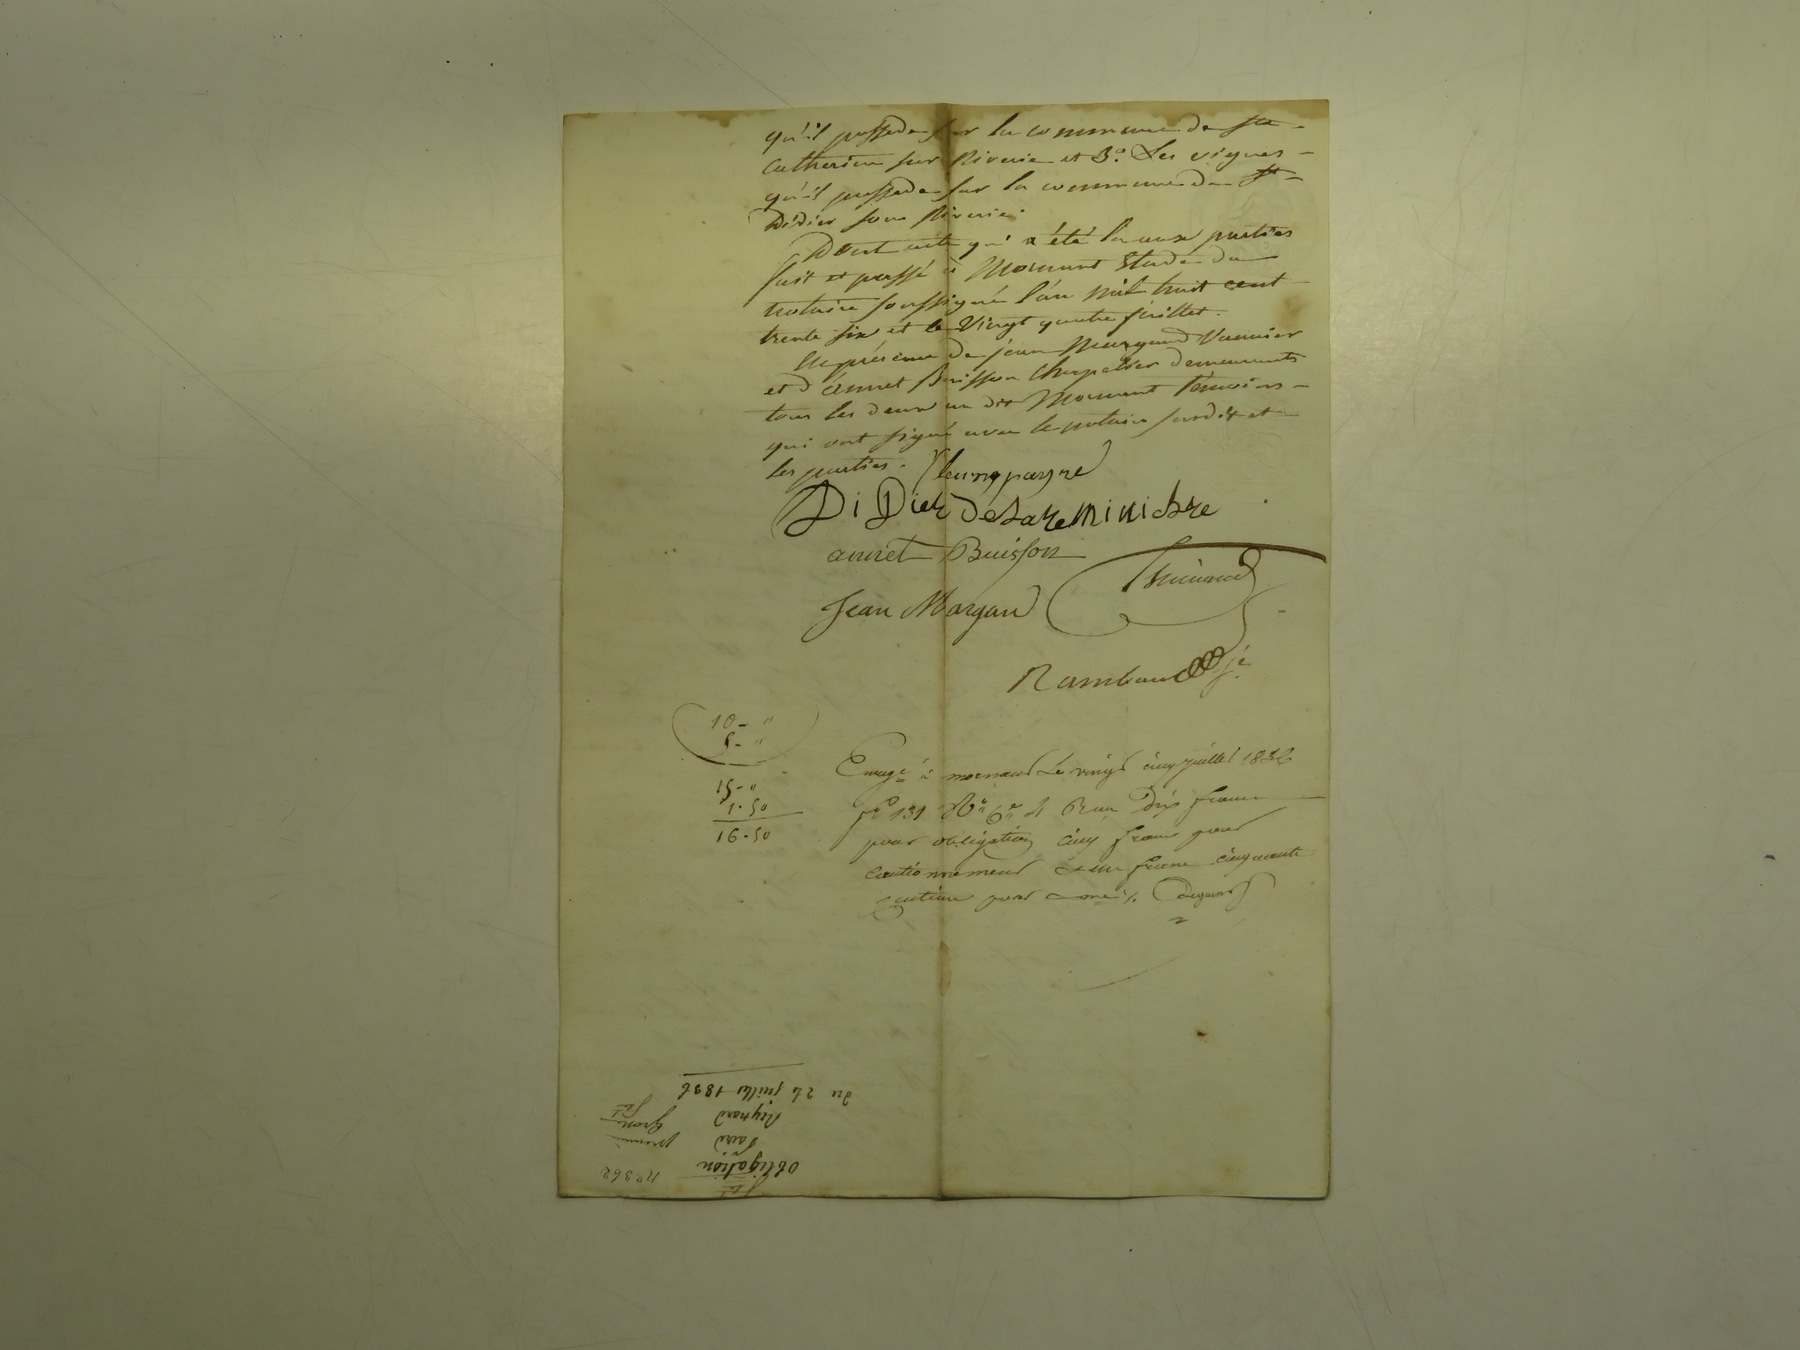 qu'il possede sur la commune de Ste
Catherine sur Riverie et 3º. Les vignes
qu'il possede sur la commune de St
Didier sous Riverie.
Dont acte qui a été lu aux parties
fait et passé à Mornant Etude du
notaire soussigné l'an mil huit cent
trente six et le vingt quatre juillet.
En présence de jean Margand
et d'annet Buisson Chapelier demeurants
tous les deux au dit Mornant témoins
qui ont signé avec le notaire susdit et
les parties.
Di Dier
annet Buisson
Jean Margand
Rambaud
10 - "
5 - "
15 - "
1 - 50
16 - 50
à mornant Le vingt cinq juillet 1836
fº 131 Dix francs
pour obligation cinq francs pour
cautionnement et un franc cinquante
centime pour
nº 362
obligation
Reynard
du 24 juillet 1836